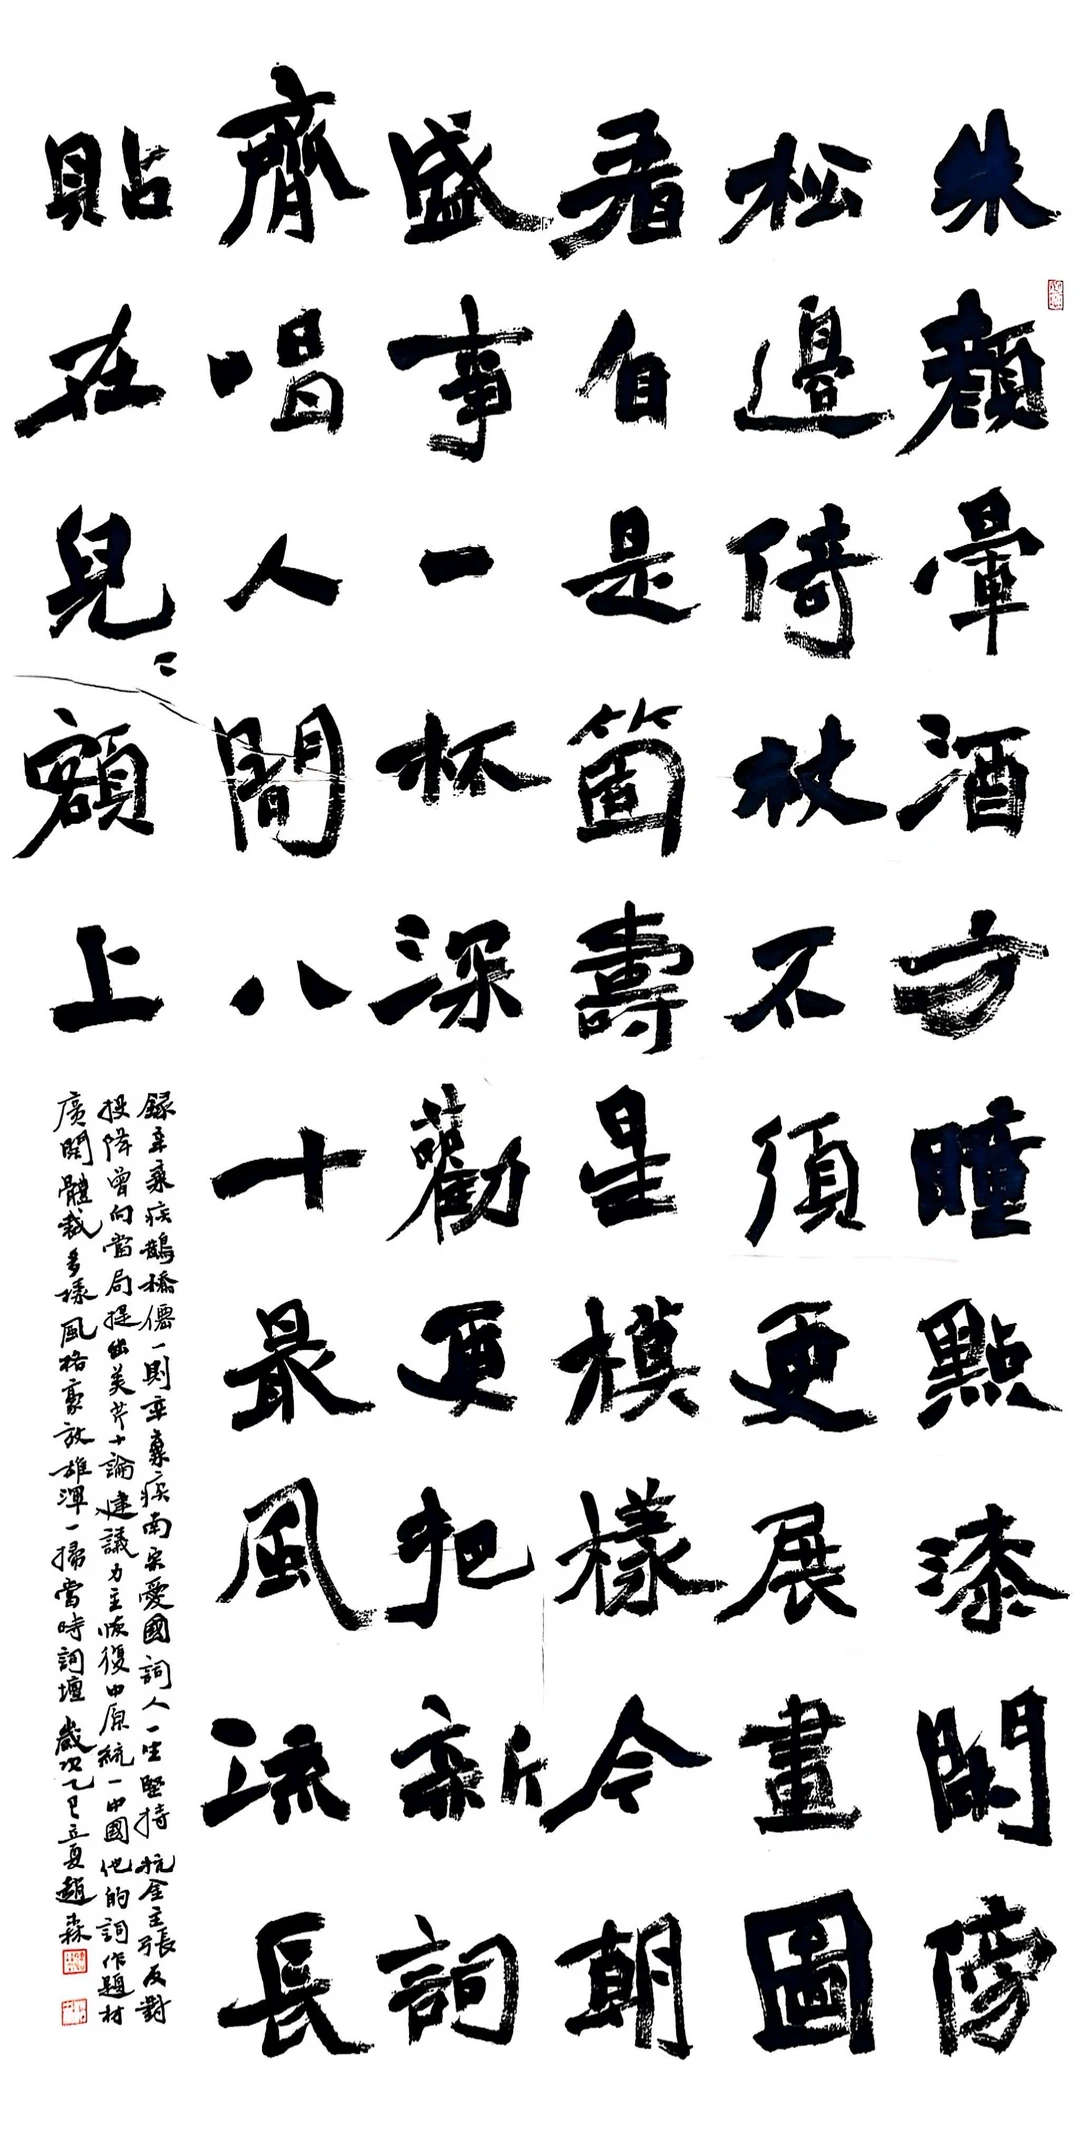 朱顏暈酒方瞳點漆閑傍
松邊倚杖不須更展畫圖
看自是箇壽星模樣今朝
盛事一杯深勸更把新詞
齊唱人間八十最風流長
貼在兒〻額上
録辛棄疾鵲橋僊一則辛棄疾南宋愛國詞人一生堅持抗金主張反對
投降曾向當局提出美芹十論建議力主恢復中原統一中國他的詞作題材
廣闊體裁多樣風格豪放雄渾一掃當時詞壇歲次乙巳立夏趙森